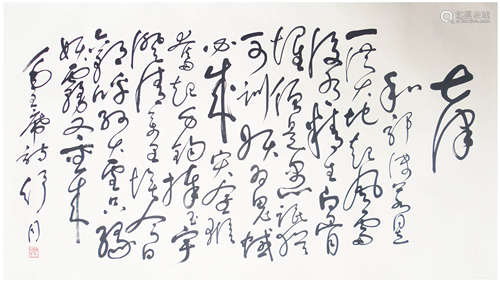 七律
和郭沫若同志
一从大地起風雷
便有精生白骨
堆僧是愚氓猶
可訓妖为鬼蜮
必成灾金猴
奮起千钧棒玉宇
澄清万里埃今日
歡呼孙大圣只缘
妖霧又重来
毛主席詩 舒同